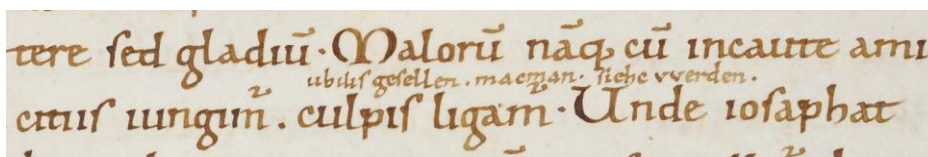 tere sed gladiū · Malorū nāq; cū incaute ami
ubilis gesellen . mac man . siehc vverden .
citiis iungim̃ . culpis ligam̃ · Unde iosaphat